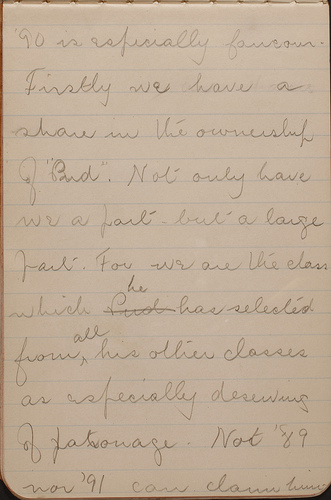 '90 is especially famous.
Firstly we have a
share in the ownership
of "Pud". Not only have
we a part - but a large
part. For we are the class
which he Pud has selected
from all his other classes
as especially deserving
of patronage. Not '89
nor '91 can claim him